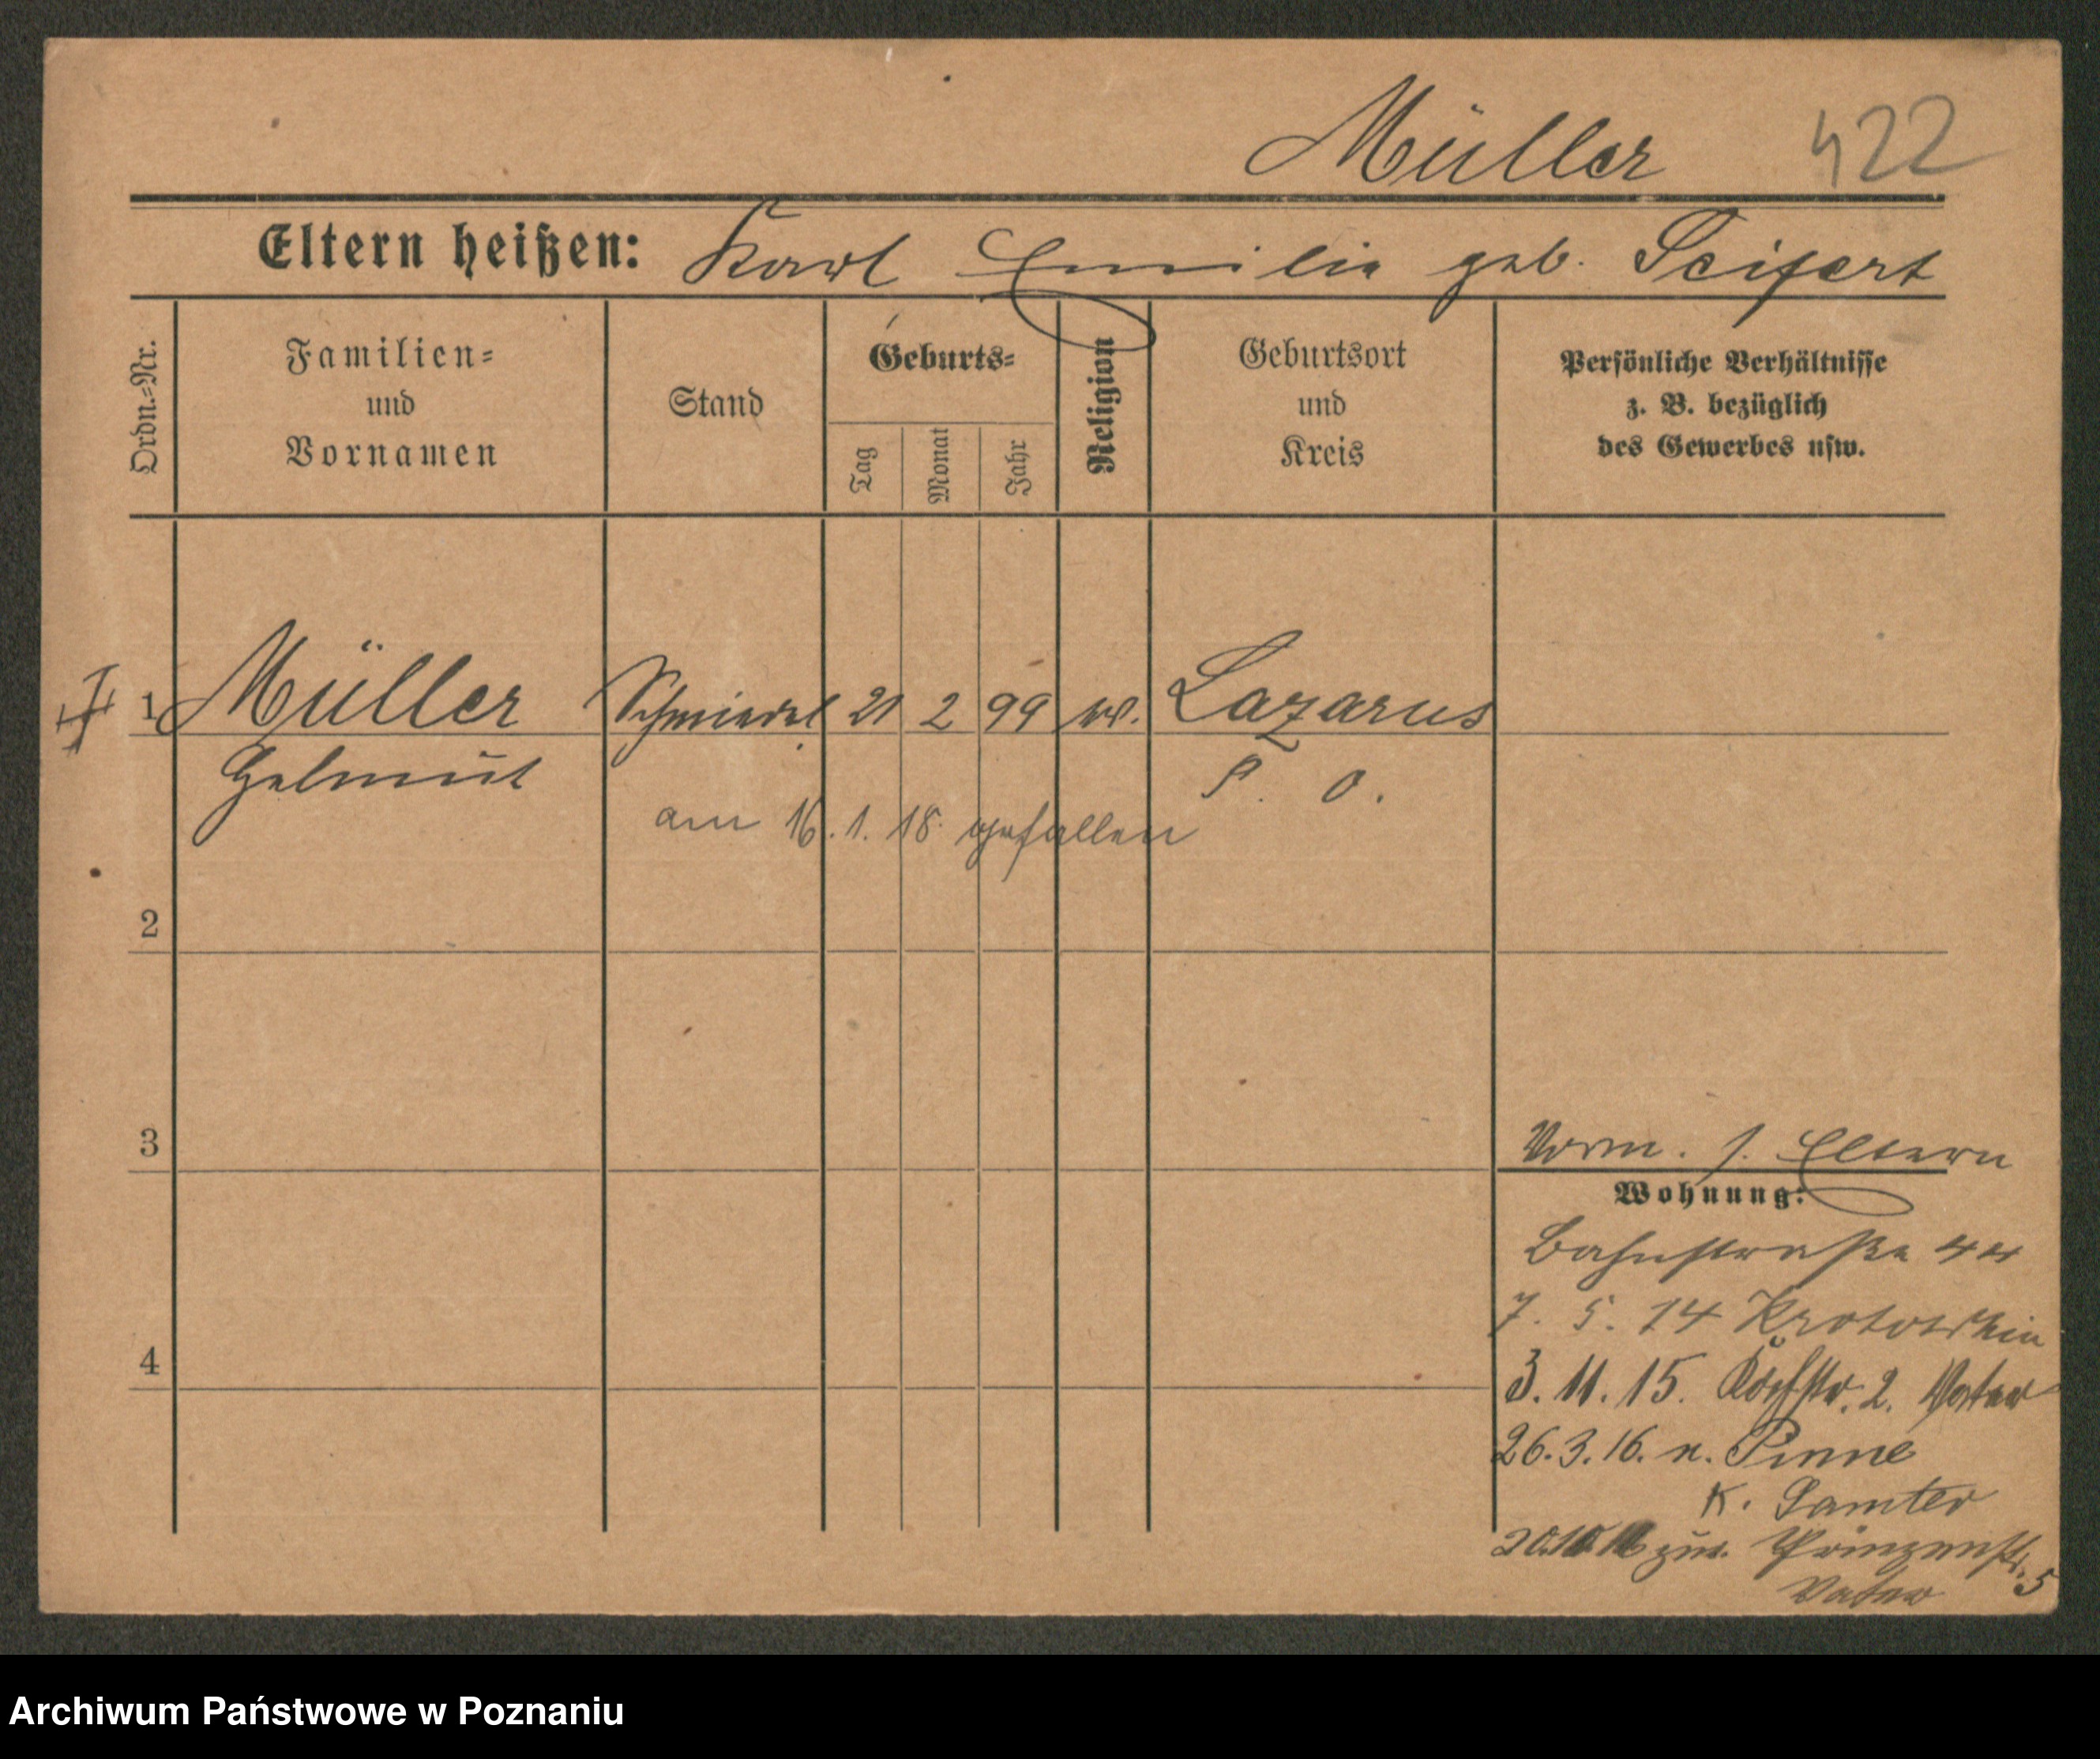 Müller 422
Eltern heißen: Karl Emilie geb. Seifert
Ordn.=Nr.
Familien=
und
Vornamen
Stand
Geburts=
Tag
Monat
Jahr
Religion
Geburtsort
und
Kreis
Persönliche Verhältnisse
z. B. bezüglich
des Gewerbes usw.
1 Müller 21 2 99 Lazarus
Helmut P. O.
am 16. 1. 18 gefallen
2
3
4
Vorm. s. Eltern
Wohnung:
Bahnstraße 44
7. 5. 14 Krotoschin
3. 11. 15. 2. Vater
26. 3. 16. n. Pinne
K. Samter
zur. Prinzenstr. 5
Vater
Archiwum Państwowe w Poznaniu